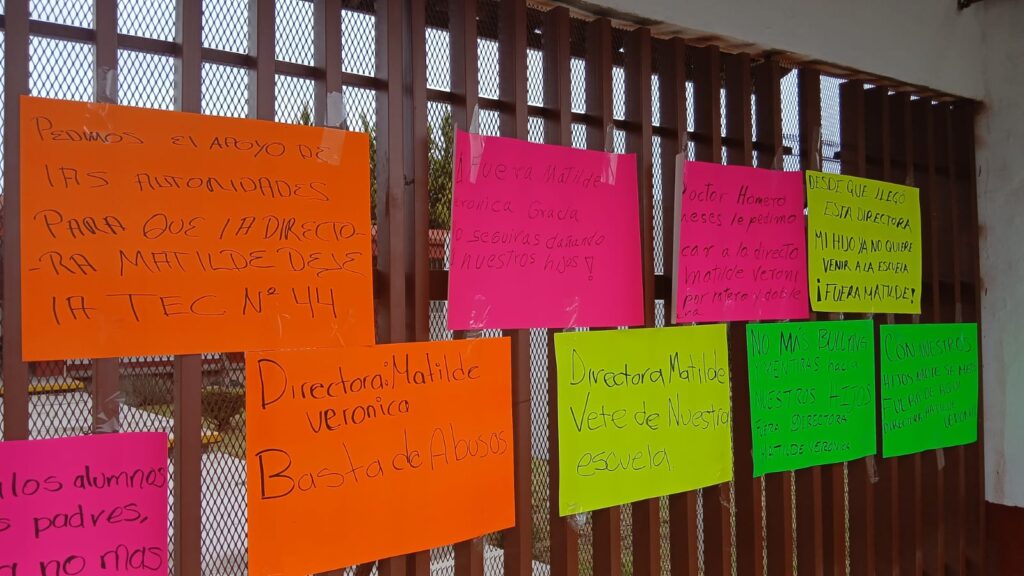 PEDIMOS El APOYO DE
lAS AUTORIDADES
PARA QUE lA DIRECTO-
-RA MATILDE DEJE
lA TEC Nº 44
¡Fuera Matilde
eronica Gracia
o seguiras dañando
nuestros hijos!
octor Homero
meses le pedimo
car a la directo
matilde veroni
por ratera y doble
DESDE QUE LLEGÓ
ESTA DIRECTORA
MI HIJO YA NO QUIERE
VENIR A LA ESCUELA
¡FUERA MATILDE!
Directora: Matilde
veronica
Basta de Abusos
Directora Matilde
Vete de Nuestra
escuela.
NO MÁS BULLYING
MENTIRAS HACIA
NUESTROS HIJOS
FUERA DIRECTORA
MATILDE VERÓNICA
CON NUESTROS
HIJOS NO TE METAS
FUERA DE AQUÍ
DIRECTORA MATILDE
VERONICA
a los alumnos
s padres,
a no mas